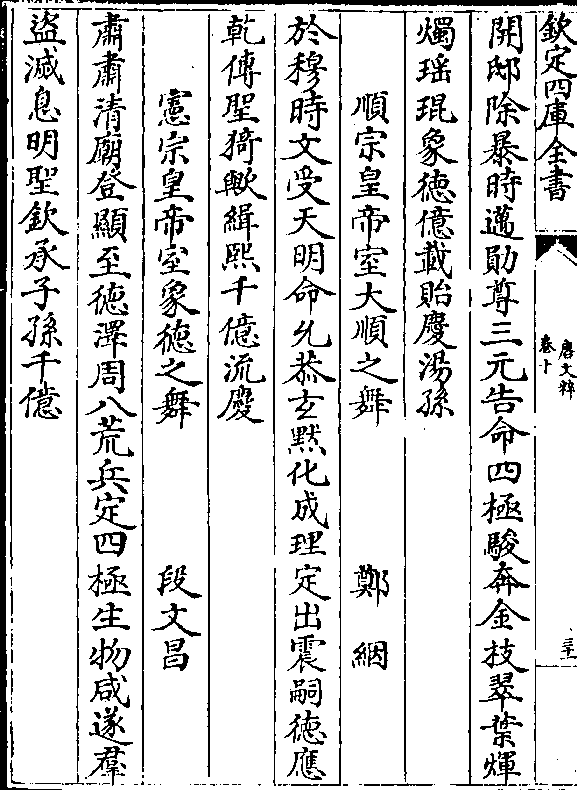 欽定四庫全書
唐文粹
卷十
三十
開邸除暴時邁勛尊三元告命四極駿奔金枝翠葉煇
燭瑶琨象徳億載貽慶湯孫
順宗皇帝室大順之舞 鄭絪
於穆時文受天明命允恭玄黙化成理定出震嗣徳應
乾傳聖猗歟緝熙千億流慶
憲宗皇帝室象徳之舞 段文昌
肅肅清廟登顯至徳澤周八荒兵定四極生物咸遂羣
盜滅息明聖欽承子孫千億